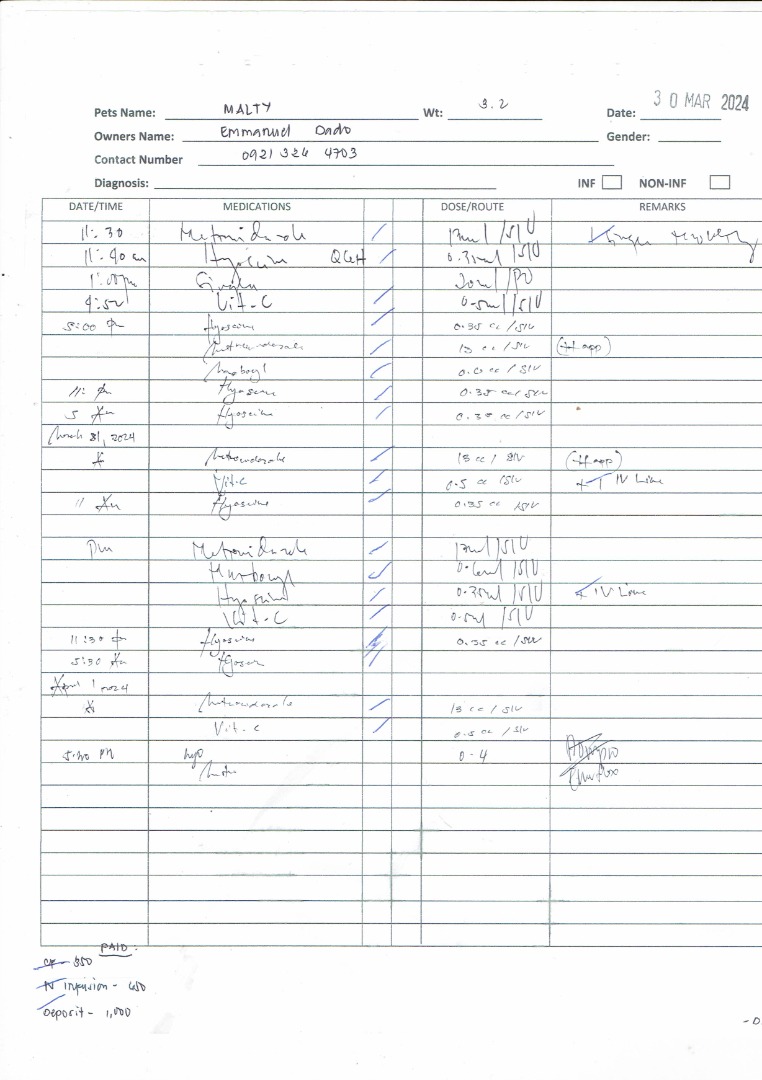 30 MAR 2024
Pets Name: MALTY Wt: 3.2 Date:
Owners Name: Emmanuel Dado Gender:
Contact Number 0921 324 4703
Diagnosis: INF NON-INF
DATE/TIME MEDICATIONS DOSE/ROUTE REMARKS
11:30 Metronidazole 13ml /SIV
11:40 am Hyoscine Q6H 0.35ml /SIV
1:00pm 20ml /PO
4:50 Vit-C 0.5ml /SIV
5:00 pm Hyoscine 0.35 cc /SIV
Metronidazole 13 cc /SIV
Marbocyl cc / SIV
11: pm Hyoscine 0.35 cc/ SIV
5 Am Hyoscine 0.35 cc / SIV
March 31, 2024
Metronidazole 13 cc / SIV
Vit-C 0.5 cc /SIV IV Line
11 Am Hyoscine 0.35 cc /SIV
pm Metronidazole 13ml /SIV
Marbocyl 0.6ml /SIV
Hyoscine 0.35ml /SIV IV Line
Vit-C 0.5ml /SIV
11:30 pm Hyoscine 0.35 cc / SIV
5:30 Am Hyoscin
April 1 2024
Metronidazole 13 cc / SIV
Vit-C 0.5 cc / SIV
PM hyo 0-4
Metro
PAID:
CF - 350
IV infusion - 650
Deposit - 1,000